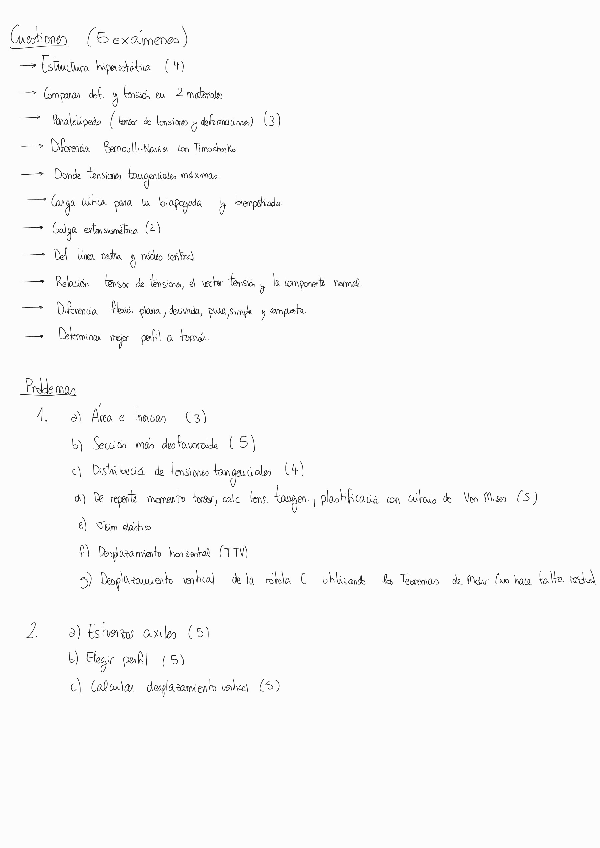 Cuestiones (5 exámenes)
→ Estructura hiperestática (4)
→ Comparar def. y tensión en 2 materiales
→ Paralelepípedo (tensor de tensiones y deformaciones) (3)
→ Diferencia Bernoulli-Navier con Timoshenko
→ Donde tensiones tangenciales máximas
→ Carga crítica para la biapoyada y empotrada
→ Galga extensométrica (2)
→ Def línea neutra y núcleo central
→ Relación tensor de tensiones, el vector tensión y la componente normal
→ Diferencia flexión plana, desviada, pura, simple y compuesta
→ Determinar mejor perfil a torsión.
Problemas
1. a) Área e inercias (3)
b) Sección más desfavorable (5)
c) Distribución de tensiones tangenciales (4)
d) De repente momento torsor, calc tens. tangen., plastificación con círculo de Von Mises (5)
e)
f) Desplazamiento horizontal (TTV)
g) Desplazamiento vertical de la rótula C utilizando los Teoremas de Mohr (no hace falta
2. a) Esfuerzos axiles (5)
b) Elegir perfil (5)
c) Calcular desplazamiento vertical (5)